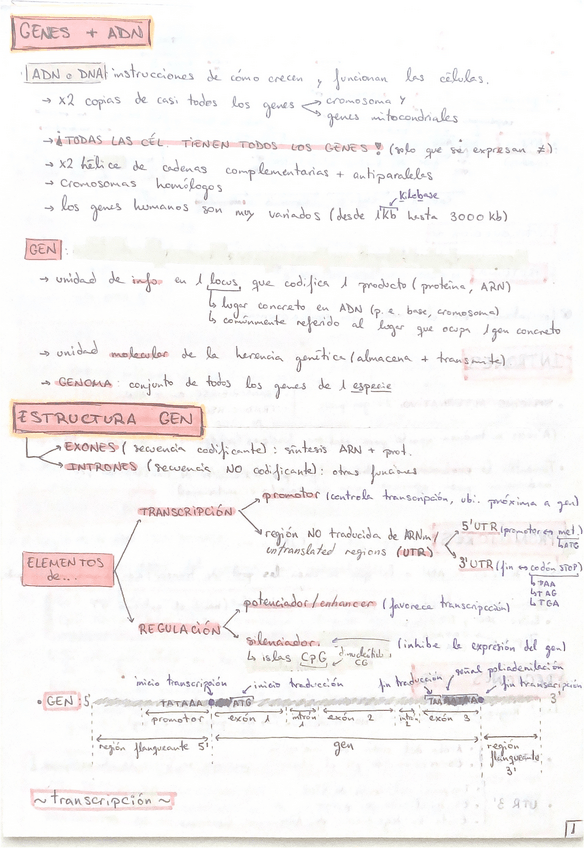 GENES + ADN
ADN o DNA instrucciones de cómo crecen y funcionan las células.
→ x2 copias de casi todos los genes → cromosoma Y
→ genes mitocondriales
→ ¡TODAS LAS CÉL TIENEN TODOS LOS GENES! (solo que se expresan ≠)
→ x2 hélice de cadenas complementarias + antiparalelas
→ cromosomas homólogos
Kilobase
→ los genes humanos son muy variados (desde 1Kb hasta 3000 Kb)
GEN:
→ unidad de info en 1 locus, que codifica 1 producto (proteína, ARN)
↳ lugar concreto en ADN (p. e. base, cromosoma)
↳ comúnmente referido al lugar que ocupa 1 gen concreto
→ unidad molecular de la herencia genética (almacena + transmite)
→ GENOMA: conjunto de todos los genes de 1 especie
ESTRUCTURA GEN
→ EXONES (secuencia codificante): síntesis ARN + prot.
→ INTRONES (secuencia NO codificante): otras funciones
ELEMENTOS de...
TRANSCRIPCIÓN
promotor (controla transcripción, ubi. próxima a gen)
región NO traducida de ARNm/
untranslated regions (UTR)
5'UTR (promotor en met.)
↳ATG
3'UTR (fin ↔ codón STOP)
↳TAA
↳TAG
↳TGA
REGULACIÓN
potenciador/enhancer (favorece transcripcción)
silenciador. (inhibe la expresión del gen)
↳ islas CpG dinucleótido CG
inicio transcripción
inicio traducción
fin traducción
señal poliadenilación
fin transcripción
• GEN: 5' TATAAA ATG 3'
promotor exón 1 intrón 1 exón 2 exón 3
región flanqueante 5' gen región flanqueante 3'
~transcripción~
1